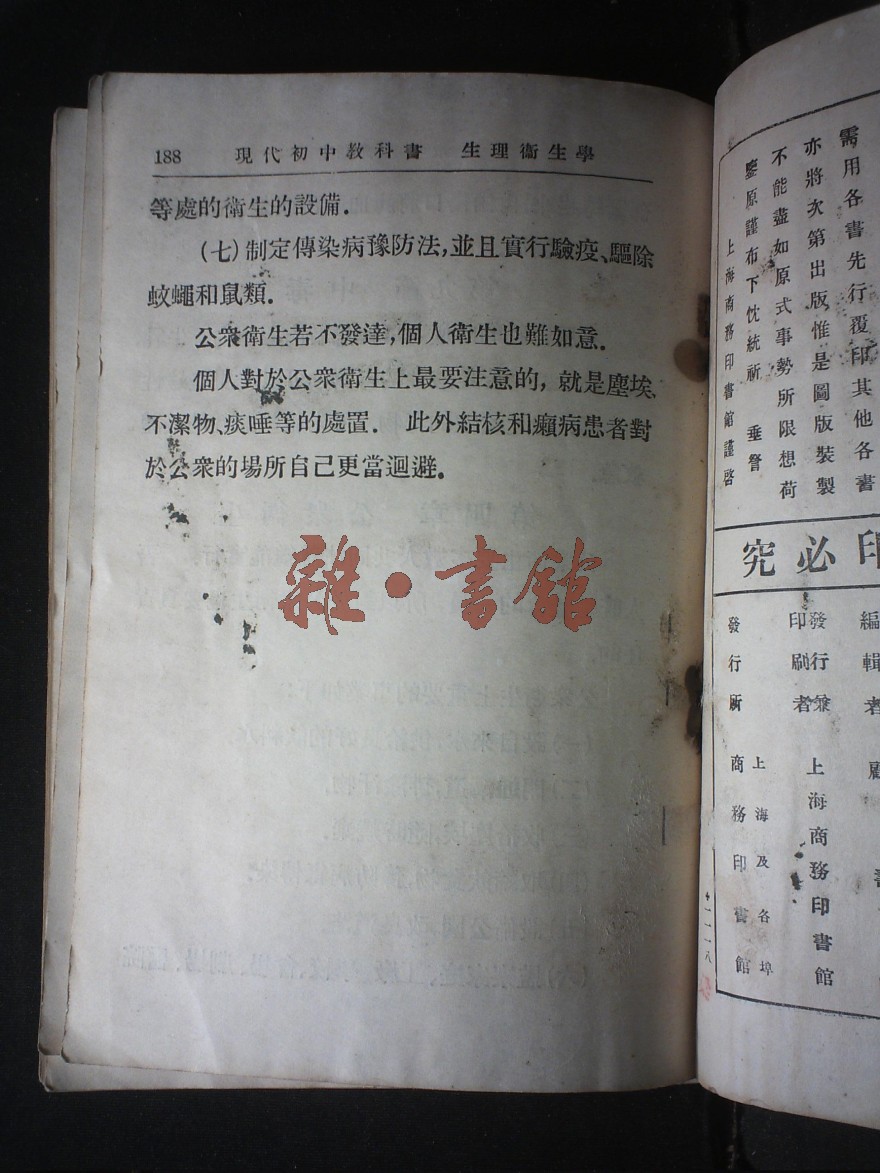 188 現代初中教科書 生理衞生學
等處的衛生的設備.
(七)制定傳染病豫防法,並且實行驗疫、驅除
蚊蠅和鼠類.
公衆衛生若不發達,個人衛生也難如意.
個人對於公衆衛生上最要注意的, 就是塵埃、
不潔物、痰唾等的處置. 此外結核和癩病患者對
於公衆的場所自己更當迴避.
雜·書館
需用各書先行覆印其他各書
亦將次第出版惟是圖版裝製
不能盡如原式事勢所限想荷
鑒原謹布下忱統祈 垂詧
上海商務印書館謹啓
印必究
編輯者 顧
發行兼
印刷者 上海商務印書館
發行所 上海及各埠
商務印書館